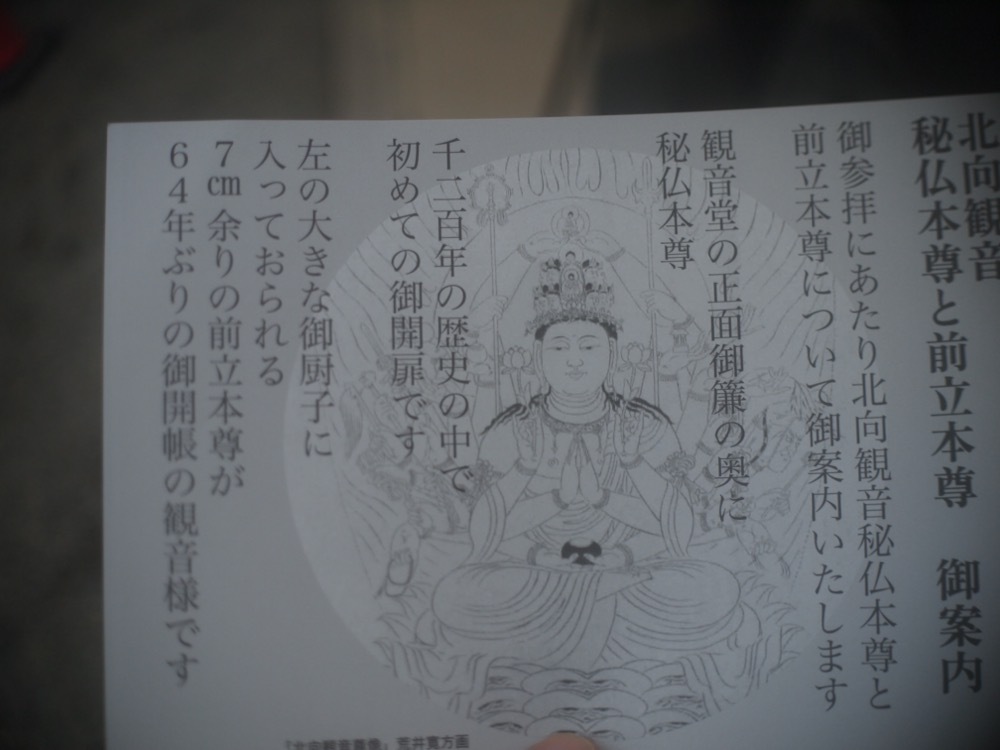 北向観音
秘仏本尊と前立本尊　御案内
御参拝にあたり北向観音秘仏本尊と
前立本尊について御案内いたします
観音堂の正面御簾の奥に
秘仏本尊
千二百年の歴史の中で
初めての御開扉です
左の大きな御厨子に
入っておられる
7㎝余りの前立本尊が
64年ぶりの御開帳の観音様です
荒井寛方画